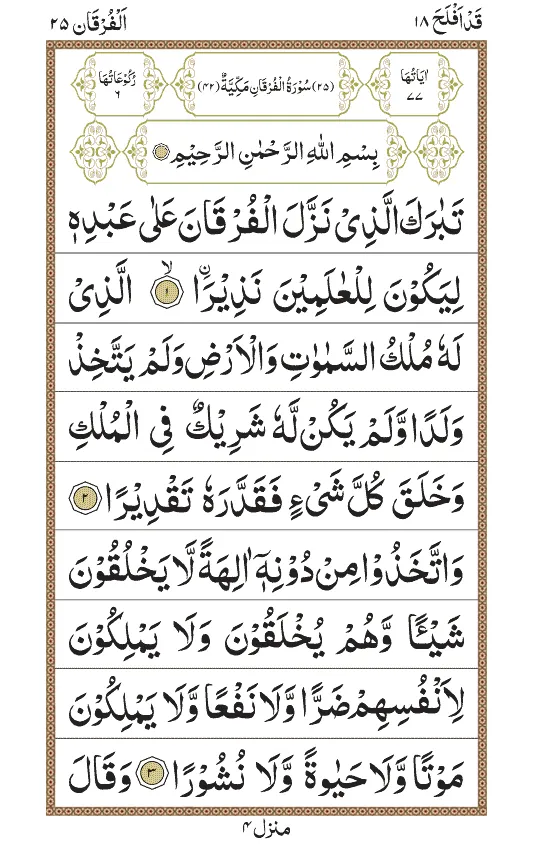 قَدْ اَفْلَحَ ۱۸
اَلْفُرْقَان ۲۵
اٰيَاتُهَا ۷۷
(۲۵) سُوْرَةُ الْفُرْقَانِ مَكِّيَّةٌ (۴۲)
رُكُوْعَاتُهَا ۶
بِسْمِ اللّٰهِ الرَّحْمٰنِ الرَّحِيْمِ
تَبٰرَكَ الَّذِىْ نَزَّلَ الْفُرْقَانَ عَلٰى عَبْدِهٖ
لِيَكُوْنَ لِلْعٰلَمِيْنَ نَذِيْرًا ۙ‏ ۱ الَّذِىْ
لَهٗ مُلْكُ السَّمٰوٰتِ وَالْاَرْضِ وَلَمْ يَتَّخِذْ
وَلَدًا وَّلَمْ يَكُنْ لَّهٗ شَرِيْكٌ فِى الْمُلْكِ
وَخَلَقَ كُلَّ شَىْءٍ فَقَدَّرَهٗ تَقْدِيْرًا ۲
وَاتَّخَذُوْا مِنْ دُوْنِهٖۤ اٰلِهَةً لَّا يَخْلُقُوْنَ
شَيْـًٔا وَّهُمْ يُخْلَقُوْنَ وَلَا يَمْلِكُوْنَ
لِاَنْفُسِهِمْ ضَرًّا وَّلَا نَفْعًا وَّلَا يَمْلِكُوْنَ
مَوْتًا وَّلَا حَيٰوةً وَّلَا نُشُوْرًا ۳ وَقَالَ
منزل ۴